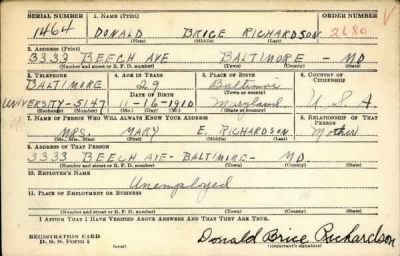 SERIAL NUMBER 1. NAME (Print) ORDER NUMBER
1464 DONALD BRICE RICHARDSON 2680 V
(First) (Middle) (Last)
2. ADDRESS (Print)
3333 BEECH AVE BALTIMORE - MD
(Number and street or R. F. D. number) (Town) (County) (State)
3. TELEPHONE 4. AGE IN YEARS 5. PLACE OF BIRTH 6. COUNTRY OF CITIZENSHIP
BALTIMORE 29 Baltimore
DATE OF BIRTH (Town or county)
UNIVERSITY-5147 11-16-1910 Maryland U.S.A.
(Exchange) (Number) (Mo.) (Day) (Yr.) (State or country)
7. NAME OF PERSON WHO WILL ALWAYS KNOW YOUR ADDRESS 8. RELATIONSHIP OF THAT PERSON
MRS. MARY E. RICHARDSON Mother
(Mr., Mrs., Miss) (First) (Middle) (Last)
9. ADDRESS OF THAT PERSON
3333 BEECH AVE- BALTIMORE- MD.
(Number and street or R. F. D. number) (Town) (County) (State)
10. EMPLOYER'S NAME
Unemployed
11. PLACE OF EMPLOYMENT OR BUSINESS
(Number and street or R. F. D. number) (Town) (County) (State)
I AFFIRM THAT I HAVE VERIFIED ABOVE ANSWERS AND THAT THEY ARE TRUE.
REGISTRATION CARD
D. S. S. Form 1 Donald Brice Richardson
(Registrant's signature)